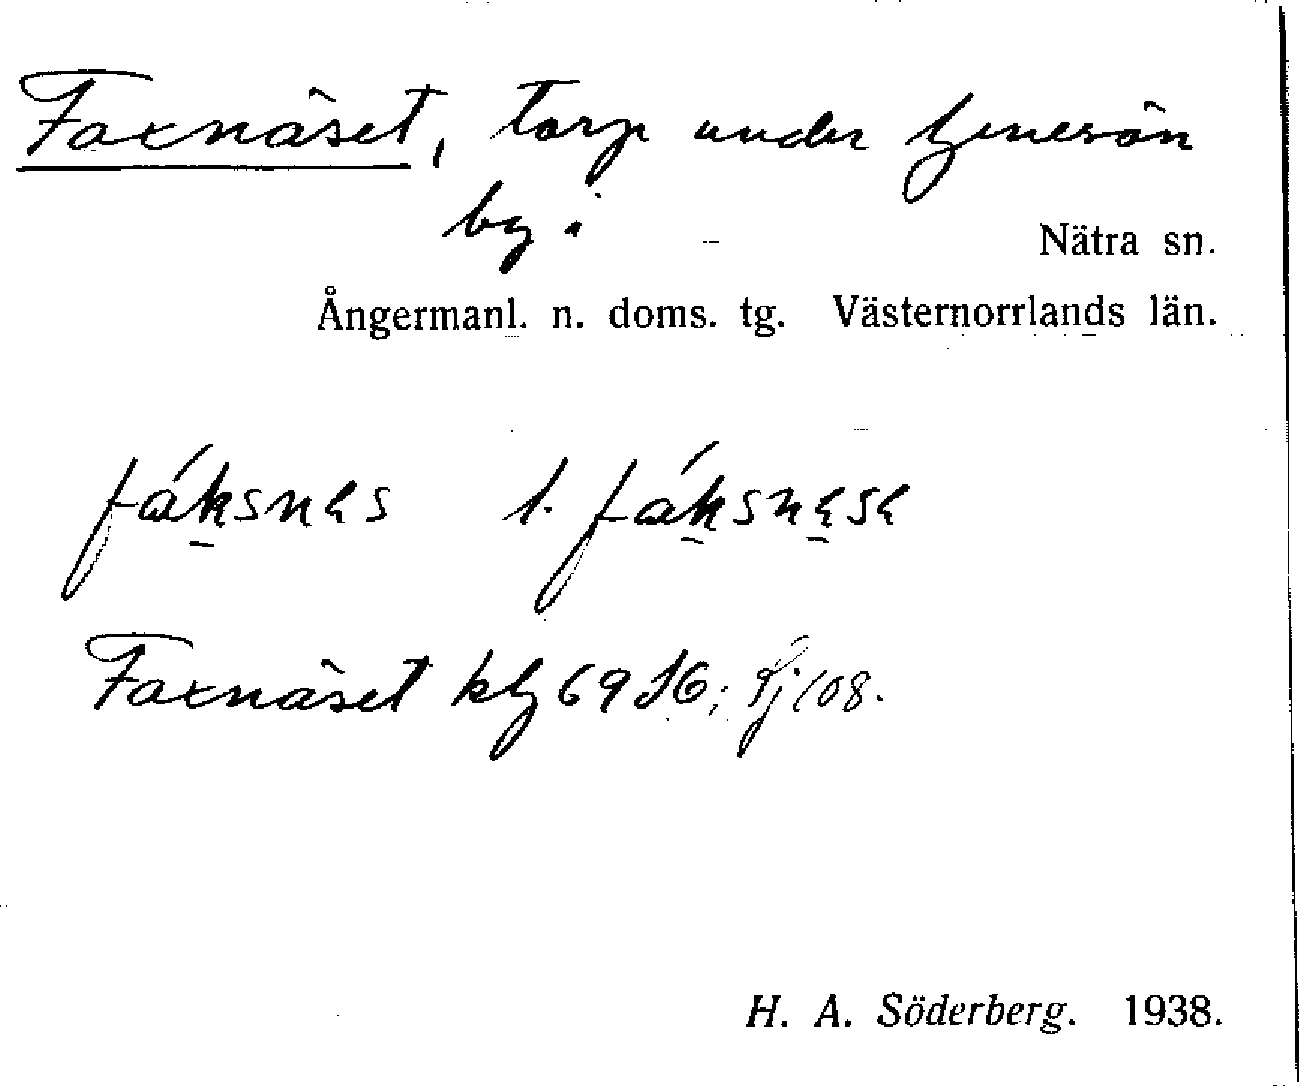 Faxnäset, torp under
by i
Nätra sn.
Ångermanl. n. doms. tg. Västernorrlands län.
fáksnɛs l. fáksnɛsɛ
Faxnäset kbg 69 SG; Rj 108.
H. A. Söderberg. 1938.